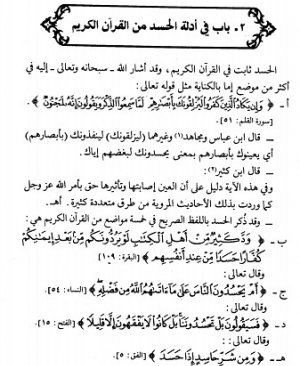 ٢ - باب في أدلة الحسد من القرآن الكريم
الحسد ثابت في القرآن الكريم، وقد أشار الله - سبحانه وتعالى - إليه في
أكثر من موضع إما بالكناية مثل قوله تعالى:
أ - ﴿ وَإِن يَكَادُ الَّذِينَ كَفَرُوا لَيُزْلِقُونَكَ بِأَبْصَارِهِمْ لَمَّا سَمِعُوا الذِّكْرَ وَيَقُولُونَ إِنَّهُ لَمَجْنُونٌ ﴾.
[سورة القلم: ٥١]
ــ قال ابن عباس ومجاهد(١) وغيرهما (ليزلقونك) لينفذونك (بأبصارهم)
أي يعينوك بأبصارهم بمعنى يحسدونك لبغضهم إياك.
ــ قال ابن كثير(٢):
وفي هذه الآية دليل على أن العين إصابتها وتأثيرها حق بأمر الله عز وجل
كما وردت بذلك الأحاديث المروية من طرق متعددة كثيرة. أهـ.
ــ وقد ذُكر الحسد باللفظ الصريح في خمسة مواضع من القرآن الكريم هي:
ب - ﴿ وَدَّ كَثِيرٌ مِّنْ أَهْلِ الْكِتَٰبِ لَوْ يَرُدُّونَكُم مِّنۢ بَعْدِ إِيمَٰنِكُمْ
كُفَّارًا حَسَدًا مِّنْ عِندِ أَنفُسِهِم ﴾ [البقرة: ١٠٩]
وقال تعالى:
ج - ﴿ أَمْ يَحْسُدُونَ النَّاسَ عَلَىٰ مَا ءَاتَىٰهُمُ اللَّهُ مِن فَضْلِهِ ﴾ [النساء: ٥٤].
وقال تعالى:
د - ﴿ فَسَيَقُولُونَ بَلْ تَحْسُدُونَنَا بَلْ كَانُوا لَا يَفْقَهُونَ إِلَّا قَلِيلًا ﴾ [الفتح: ١٥].
وقال تعالى: :
هـ - ﴿ وَمِن شَرِّ حَاسِدٍ إِذَا حَسَدَ ﴾ [الفلق: ٥].